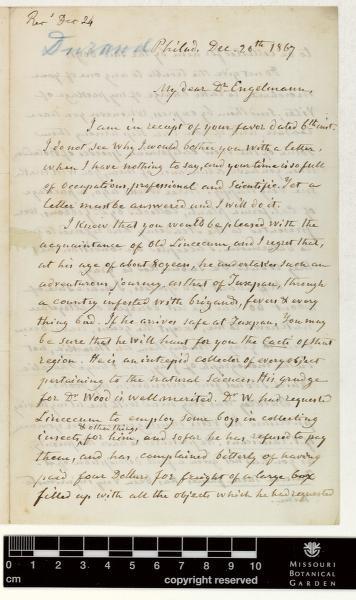 Recd Dec 24
Durand
Philad. Dec. 20th 1867
My dear Dr Engelmann,
I am in receipt of your favor dated 6th inst.
I do not see why I would bother you with a letter,
when I have nothing to say, and your time is so full
of occupations, professional and scientific. Yet a
letter must be answered and I will do it.
I knew that you would be pleased with the
acquaintance of Old Lincecum, and I regret that,
at his age of about 80 years, he undertakes such an
adventurous journey, as that of Tuxpan, through
a country infested with brigands, fevers & every
thing bad. If he arrives safe at Tuxpan, you may
be sure that he will hunt for you the Cacti of that
region. He is an intrepid collector of every object
pertaining to the natural Sciences. His grudge
for Dr Wood is well merited. Dr W. had requested
Lincecum to employ some boys in collecting
insects & other things for him, and so far he has refused to pay
them, and has complained bitterly of having
paid four Dollars for freight of a large box
filled up with all the objects which he had requested
0 1 2 3 4 5 6 7 8 9 10
cm
copyright reserved
MISSOURI
BOTANICAL
GARDEN